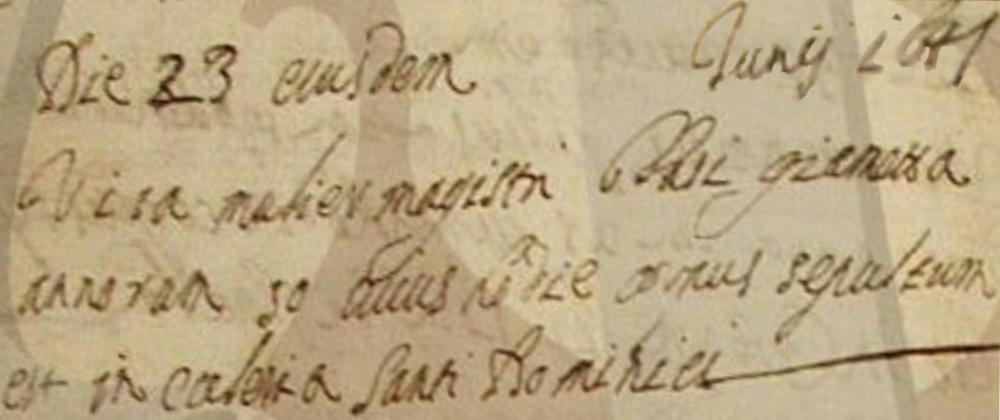 Die 23 eiusdem Junij 1641
Visa mulier magistri Blasi giamessa
annorum 50 cuius in die corpus sepultum
est in eclesia Santi Dominici